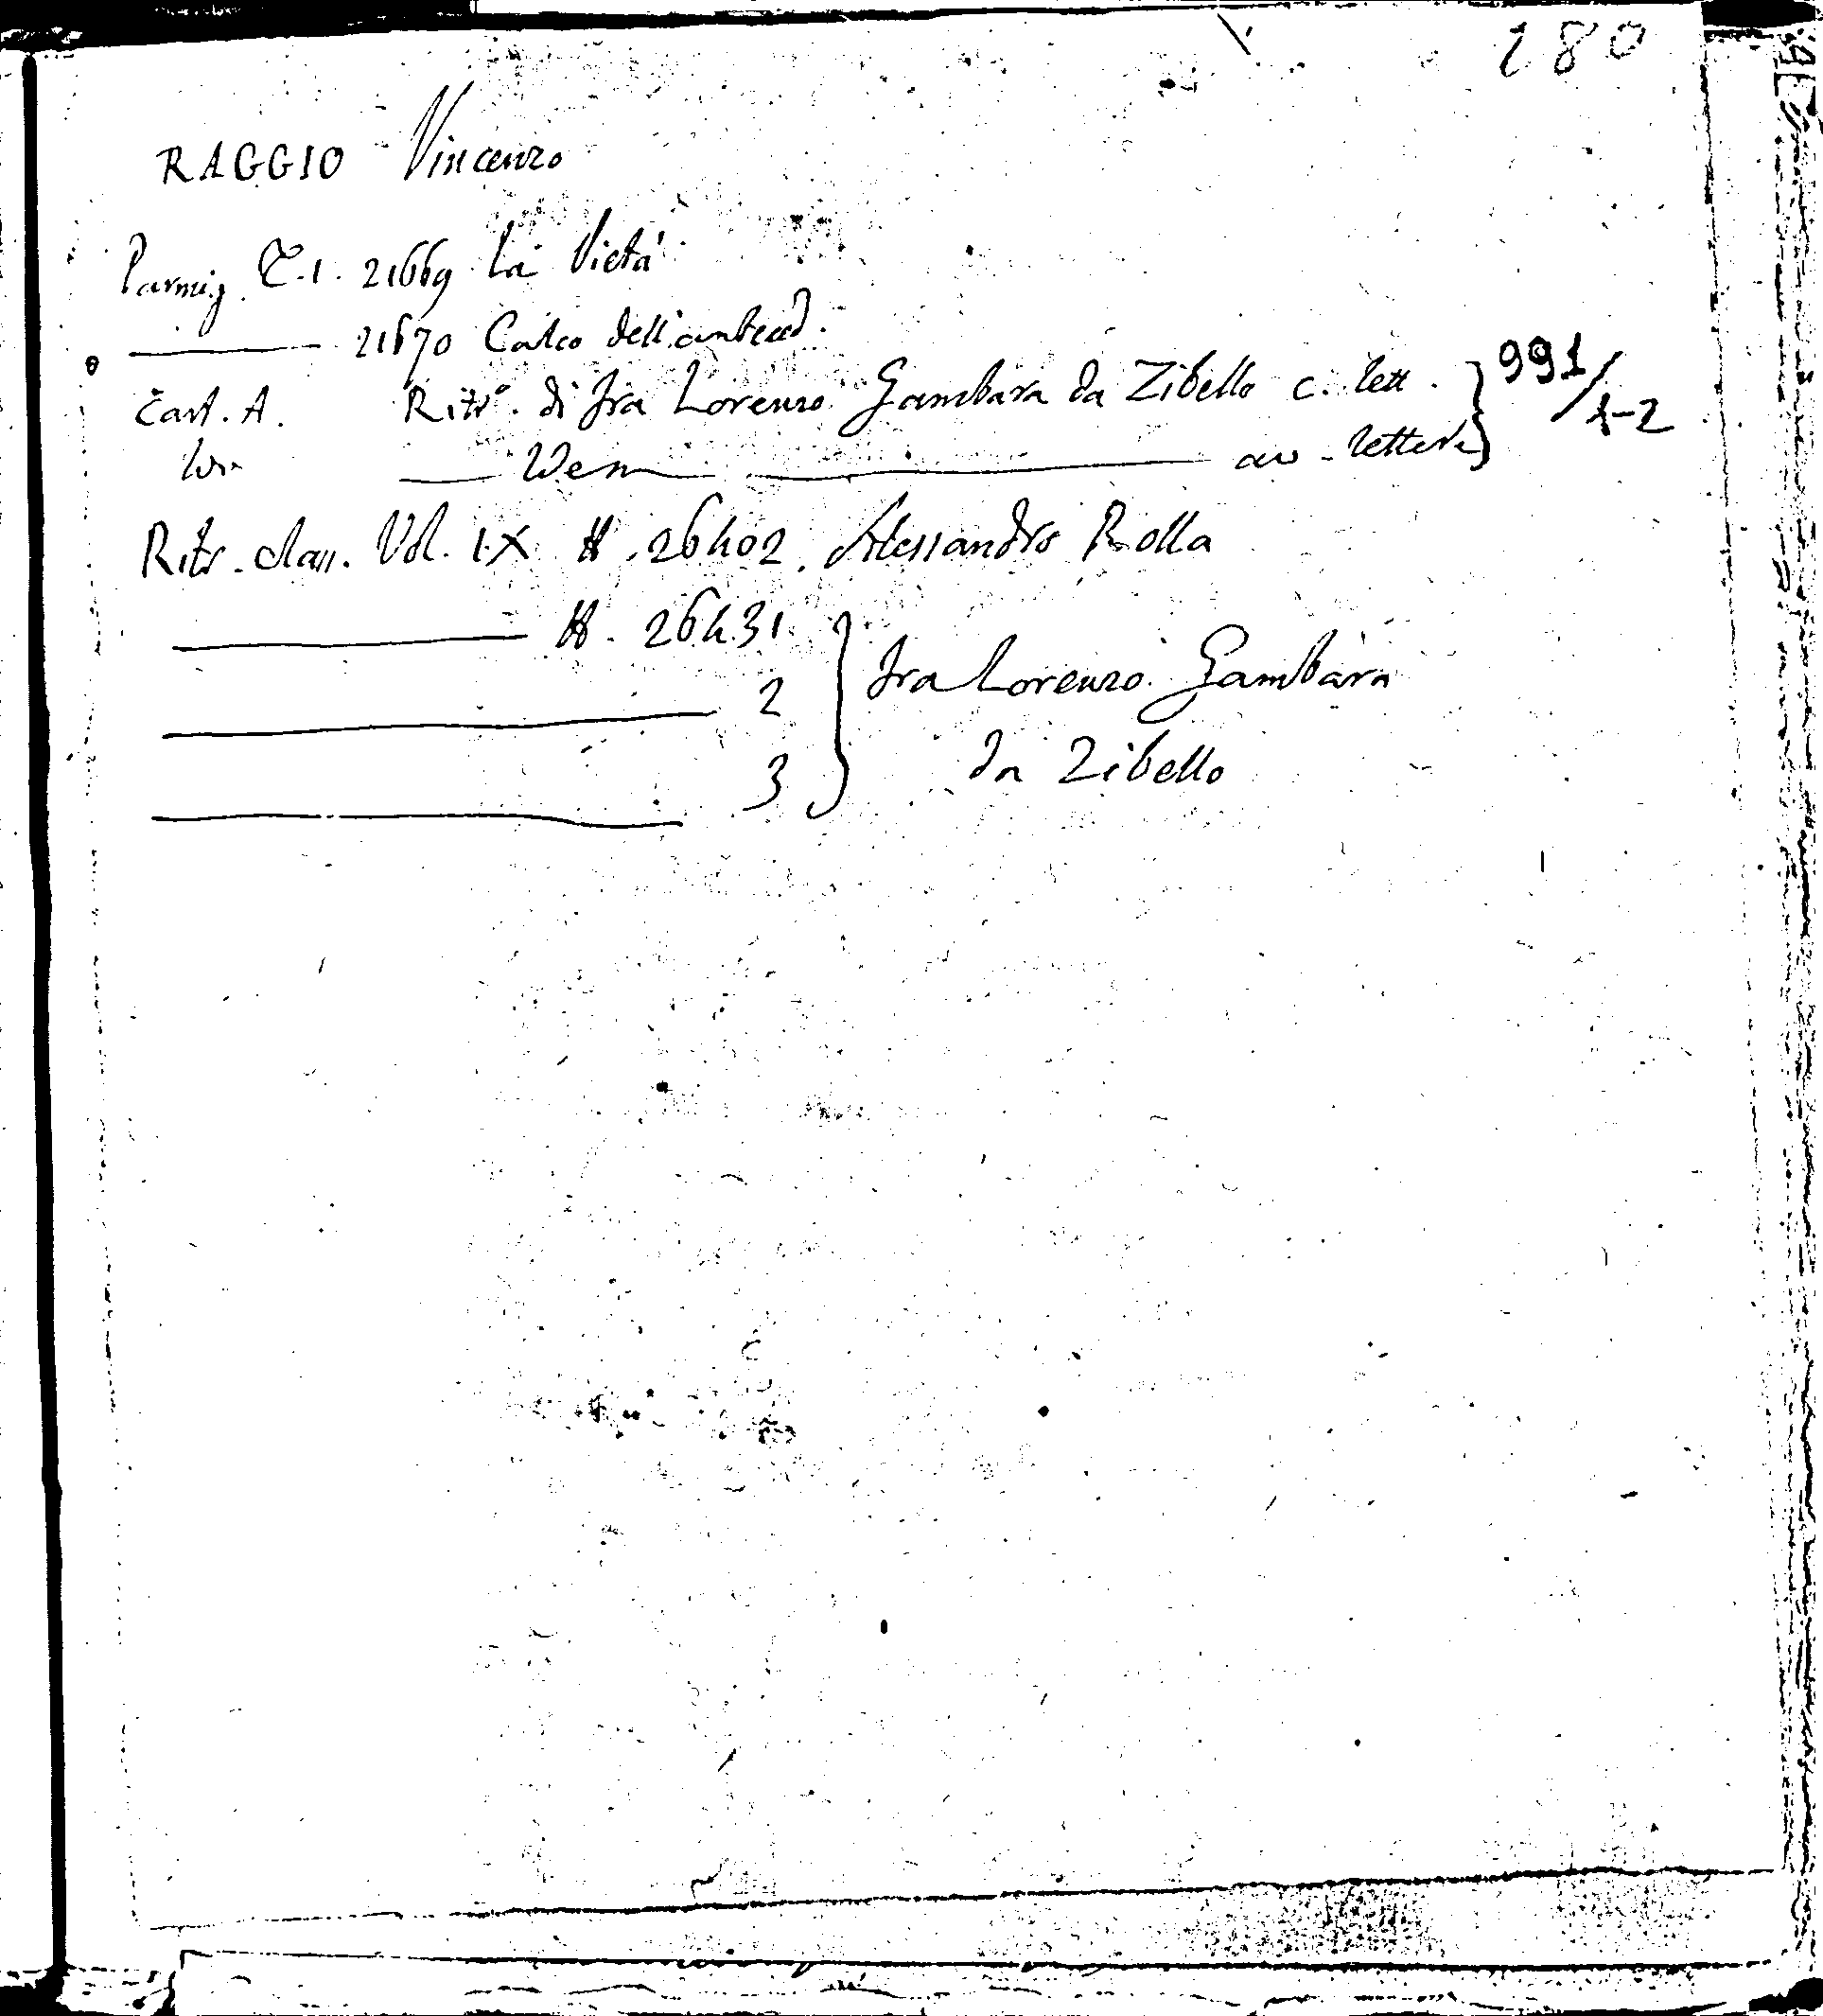 280
RAGGIO Vincenzo
Parmig. T.1. 21669 La Pietà
21670 Calco dell'anteced.
Cart. A. Ritr°. di Fra Lorenzo Gambara da Zibello c. lett. } 991/1-2
Idem av. lettere
Ritr. class. Vol. IX N. 26402. Alessandro Rolla
N. 26431
2 } Fra Lorenzo Gambara
3 da Zibello